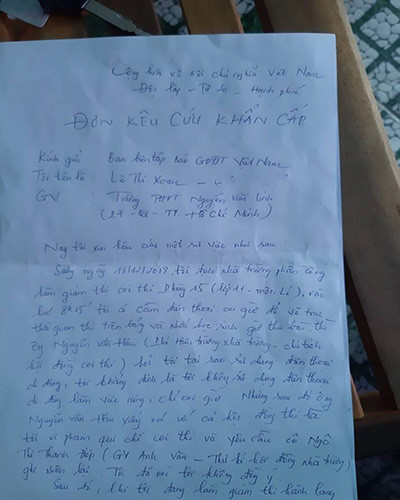 Cộng hòa xã hội chủ nghĩa Việt Nam
Độc lập - Tự do - Hạnh phúc
ĐƠN KÊU CỨU KHẨN CẤP
Kính gửi Ban biên tập báo GDĐT Việt Nam
Tôi tên là Lê Thị Xoan
GV Trường THPT Nguyễn Văn Linh
(P7 - Q8 - TP Hồ Chí Minh)
Nay tôi xin kêu cứu một sự việc như sau
Sáng ngày 18/12/2018 tôi được nhà trường phân công
làm giám thị coi thi phòng 15 (lớp 11 - môn Lí), vào
lúc 8h15' tôi có cầm điện thoại coi giờ để
thời gian thi trên bảng và nhắc học sinh giờ thi, thì
ông Nguyễn Văn Hậu (Phó Hiệu trưởng nhà trường - chủ tịch
hội đồng coi thi) hỏi tôi tại sao sử dụng điện thoại
di động, tôi khẳng định là tôi không sử dụng điện thoại
di động làm việc riêng, chỉ coi giờ. Nhưng sau đó ông
Nguyễn Văn Hậu với cả hội đồng thi là
tôi vi phạm qui chế coi thi và yêu cầu cô Ngô
Thị Thanh Điệp (GV Anh Văn - Thư kí hội đồng nhà trường)
ghi nhận lại. Tôi đã nói tôi không đồng ý
Sau đó, khi tôi đang làm giám thị hành lang